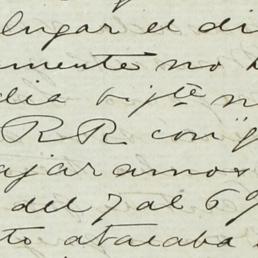 lugar el di
amente no
dia vigte n
RR con "g
ajaramos
del 7 al 6 9
to atacaba